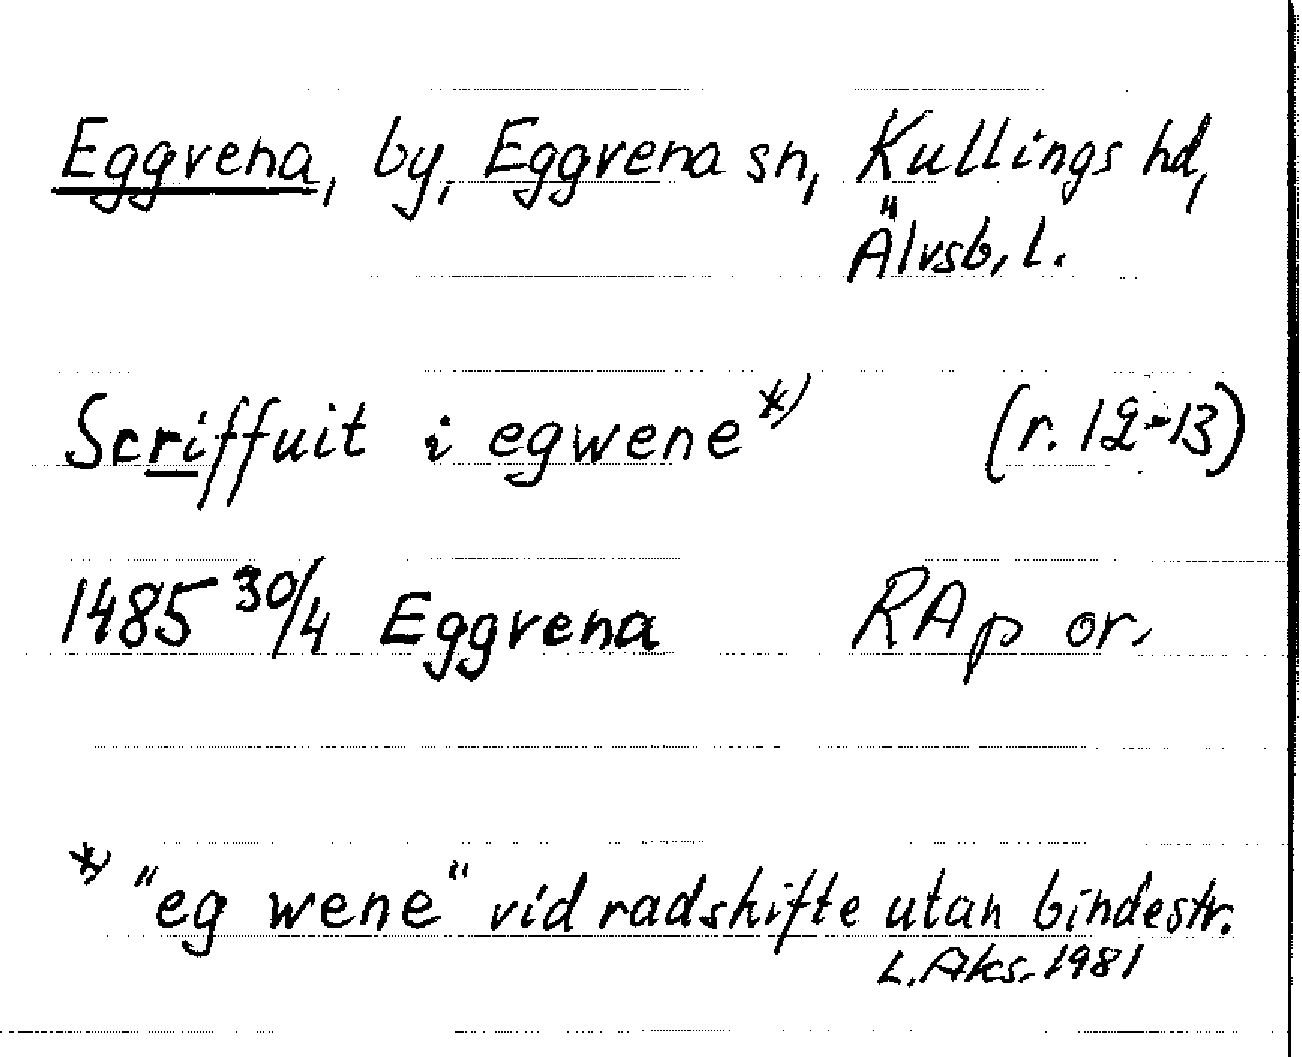 Eggvena, by, Eggvena sn, Kullings hd,
Älvsb. l.
Scriffuit i egwene *) (r. 12-13)
1485 30/4 Eggvena RAp or.
*) "eg wene" vid radskifte utan bindestr.
L. Aks. 1981